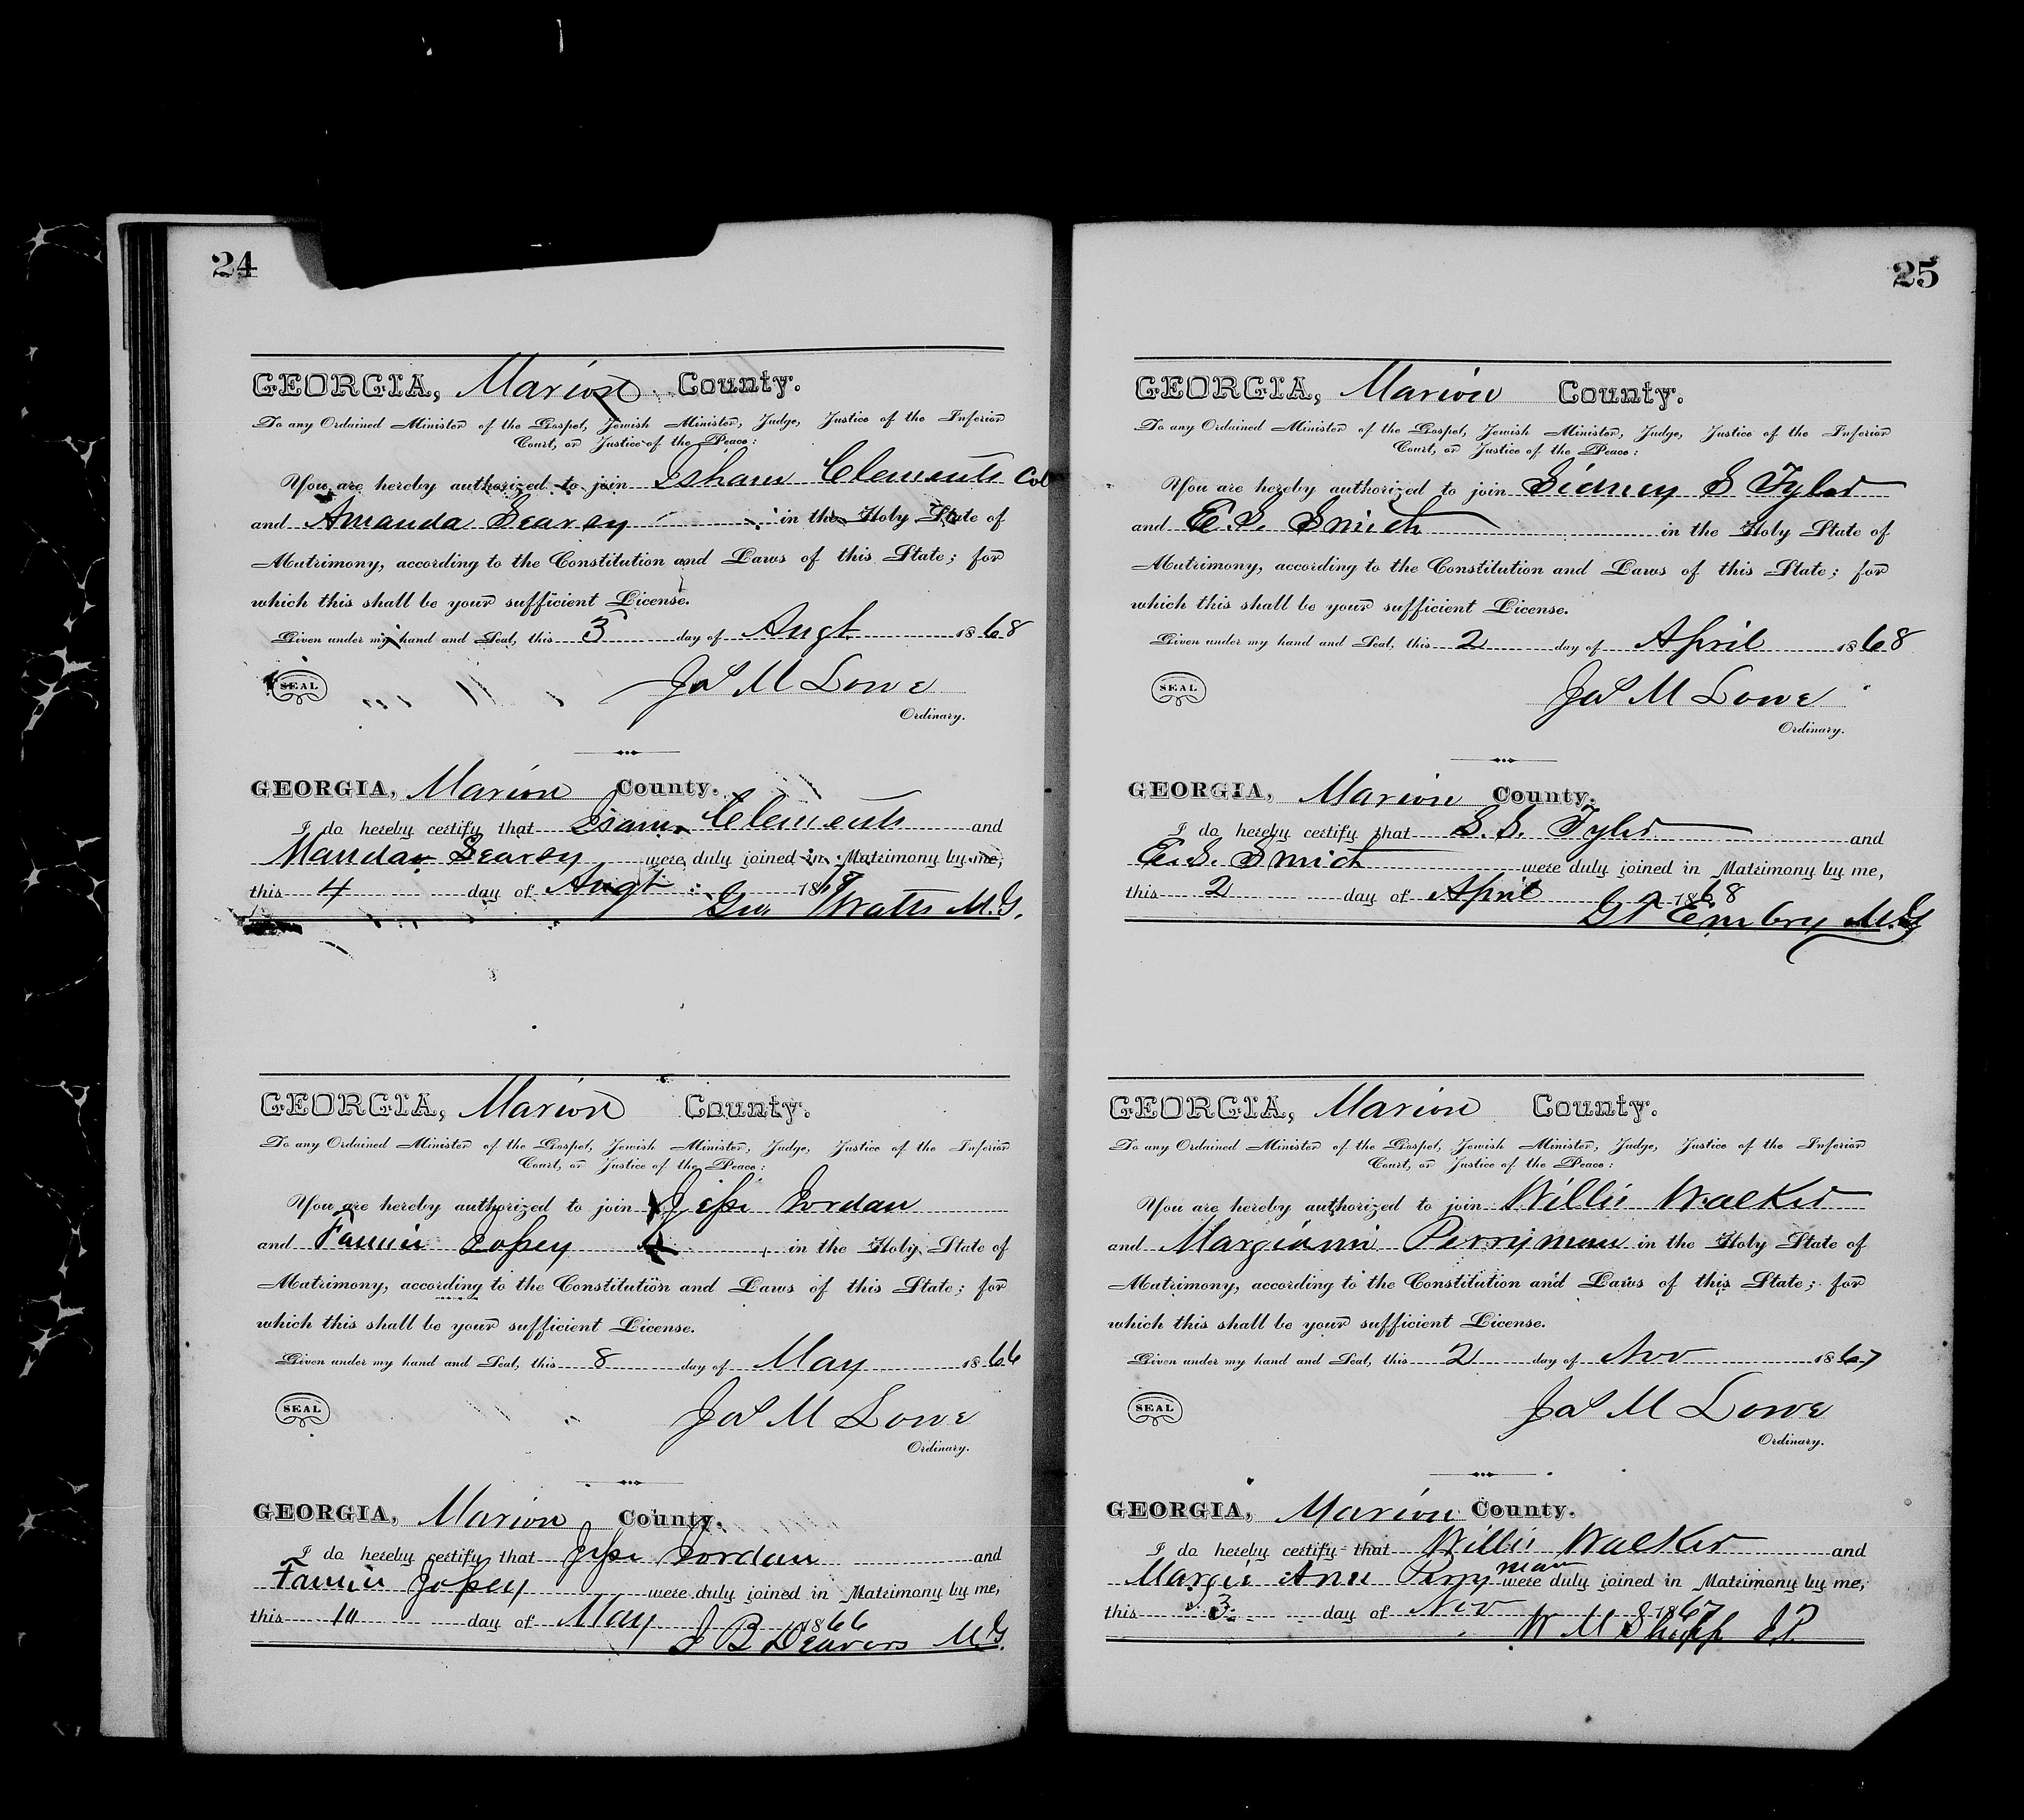 24
GEORGIA, Marion County.
To any Ordained Minister of the Gospel, Jewish Minister, Judge, Justice of the Inferior
Court, or Justice of the Peace:
You are hereby authorized to join Isham Clements Col
and Amanda Searcy in the Holy State of
Matrimony, according to the Constitution and Laws of this State; for
which this shall be your sufficient License.
Given under my hand and Seal, this 3 day of Augt 1868
SEAL Jas M Lowe
Ordinary.
GEORGIA, Marion County.
I do hereby certify that Isam Clements and
Manda Searcy were duly joined in Matrimony by me,
this 4 day of Augt 18
Geo Watts M.G.
GEORGIA, Marion County.
To any Ordained Minister of the Gospel, Jewish Minister, Judge, Justice of the Inferior
Court, or Justice of the Peace:
You are hereby authorized to join Jesse Jordan
and Fannie Jossey in the Holy State of
Matrimony, according to the Constitution and Laws of this State; for
which this shall be your sufficient License.
Given under my hand and Seal, this 8 day of May 1866
SEAL Jas M Lowe
Ordinary.
GEORGIA, Marion County.
I do hereby certify that Jesse Jordan and
Fannie Jossey were duly joined in Matrimony by me,
this 10 day of May 1866
J B Deavors M.G.
25
GEORGIA, Marion County.
To any Ordained Minister of the Gospel, Jewish Minister, Judge, Justice of the Inferior
Court, or Justice of the Peace:
You are hereby authorized to join Sidney S Tyler
and E. S. Smith in the Holy State of
Matrimony, according to the Constitution and Laws of this State; for
which this shall be your sufficient License.
Given under my hand and Seal, this 2 day of April 1868
SEAL Jas M Lowe
Ordinary.
GEORGIA, Marion County.
I do hereby certify that S. S. Tyler and
E. S. Smith were duly joined in Matrimony by me,
this 2 day of April 1868
Embry M.G
GEORGIA, Marion County.
To any Ordained Minister of the Gospel, Jewish Minister, Judge, Justice of the Inferior
Court, or Justice of the Peace:
You are hereby authorized to join Willis Walker
and Margianni Perryman in the Holy State of
Matrimony, according to the Constitution and Laws of this State; for
which this shall be your sufficient License.
Given under my hand and Seal, this 2 day of Nov 1867
SEAL Jas M Lowe
Ordinary.
GEORGIA, Marion County.
I do hereby certify that Willis Walker and
Margie Ann Perryman were duly joined in Matrimony by me,
this 3 day of Nov 1867
W M Shipp J.P.